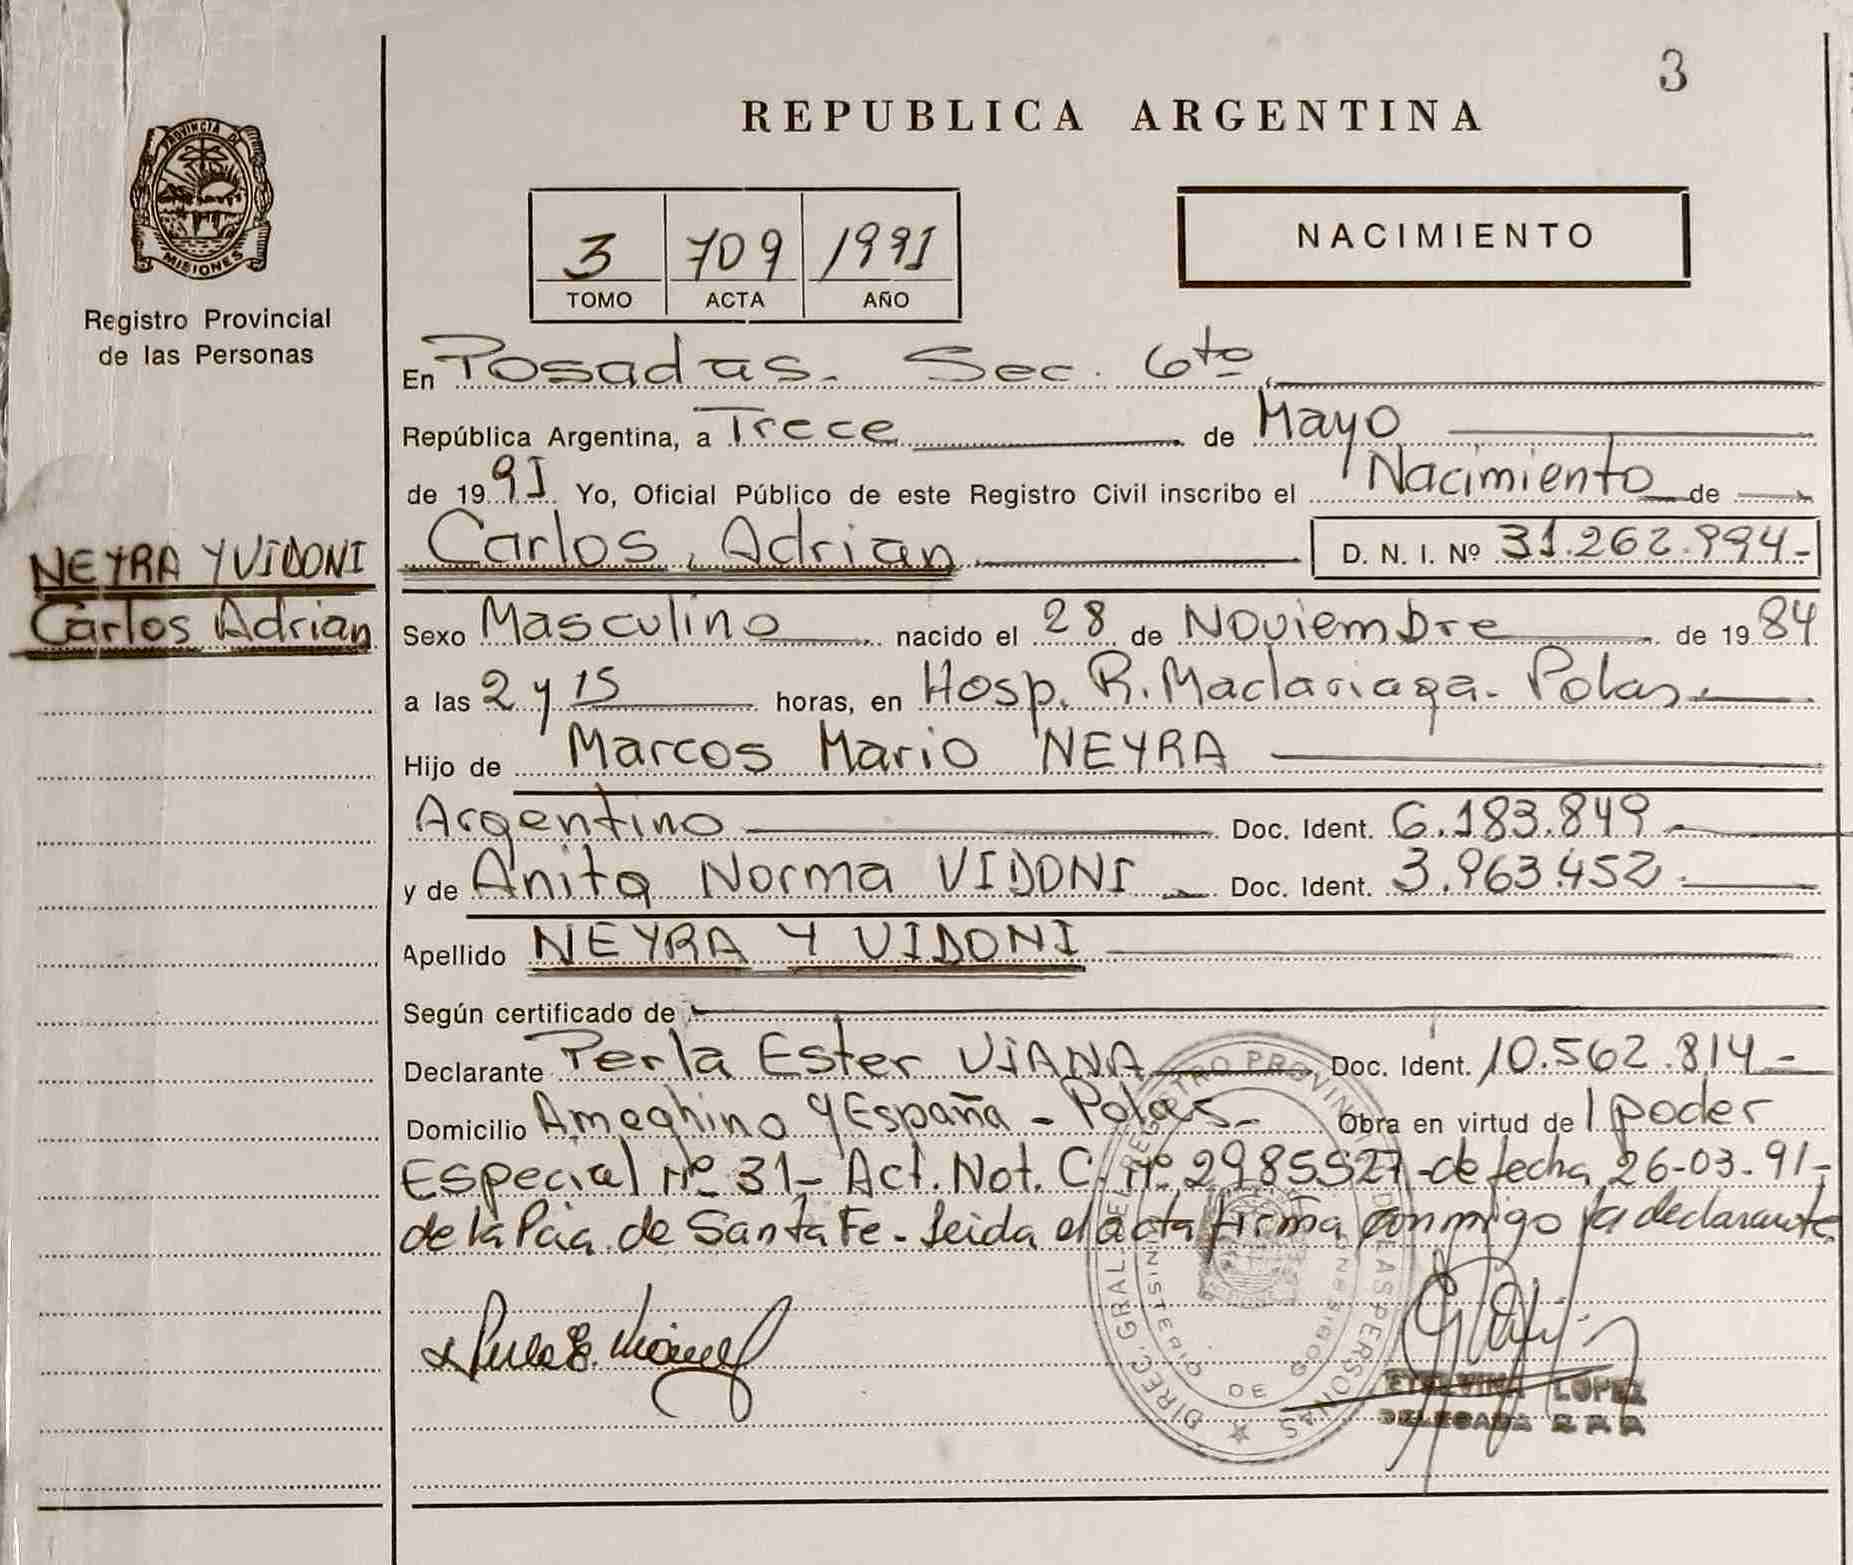 3
REPUBLICA ARGENTINA
PROVINCIA DE
MISIONES
Registro Provincial
de las Personas
3 709 1991
TOMO ACTA AÑO
NACIMIENTO
En Posadas. Sec. 6to
República Argentina, a Trece de Mayo
de 1991 Yo, Oficial Público de este Registro Civil inscribo el Nacimiento de
NEYRA Y VIDONI
Carlos Adrian
Carlos, Adrian D. N. I. Nº 31.262.994.-
Sexo Masculino nacido el 28 de Noviembre de 1984
a las 2 y 15 horas, en Hosp. R. Madariaga. Pdas.
Hijo de Marcos Mario NEYRA
Argentino Doc. Ident. 6.183.849
y de Anita Norma VIDONI Doc. Ident. 3.963.452
Apellido NEYRA Y VIDONI
Según certificado de
Declarante Perla Ester VIANA Doc. Ident. 10.562.814-
Domicilio Ameghino y España - Pdas- Obra en virtud de 1 poder
Especial nº 31- Act. Not. C. nº 2985527-de fecha 26-03-91-
de la Pcia. de Santa Fe- Leida el acta firma conmigo la declarante
DIREC. GRAL. DEL REGISTRO PROVINCIAL DE LAS PERSONAS
MINISTERIO DE GOBIERNO
ETELVINA LOPEZ
DELEGADA R.P.P.